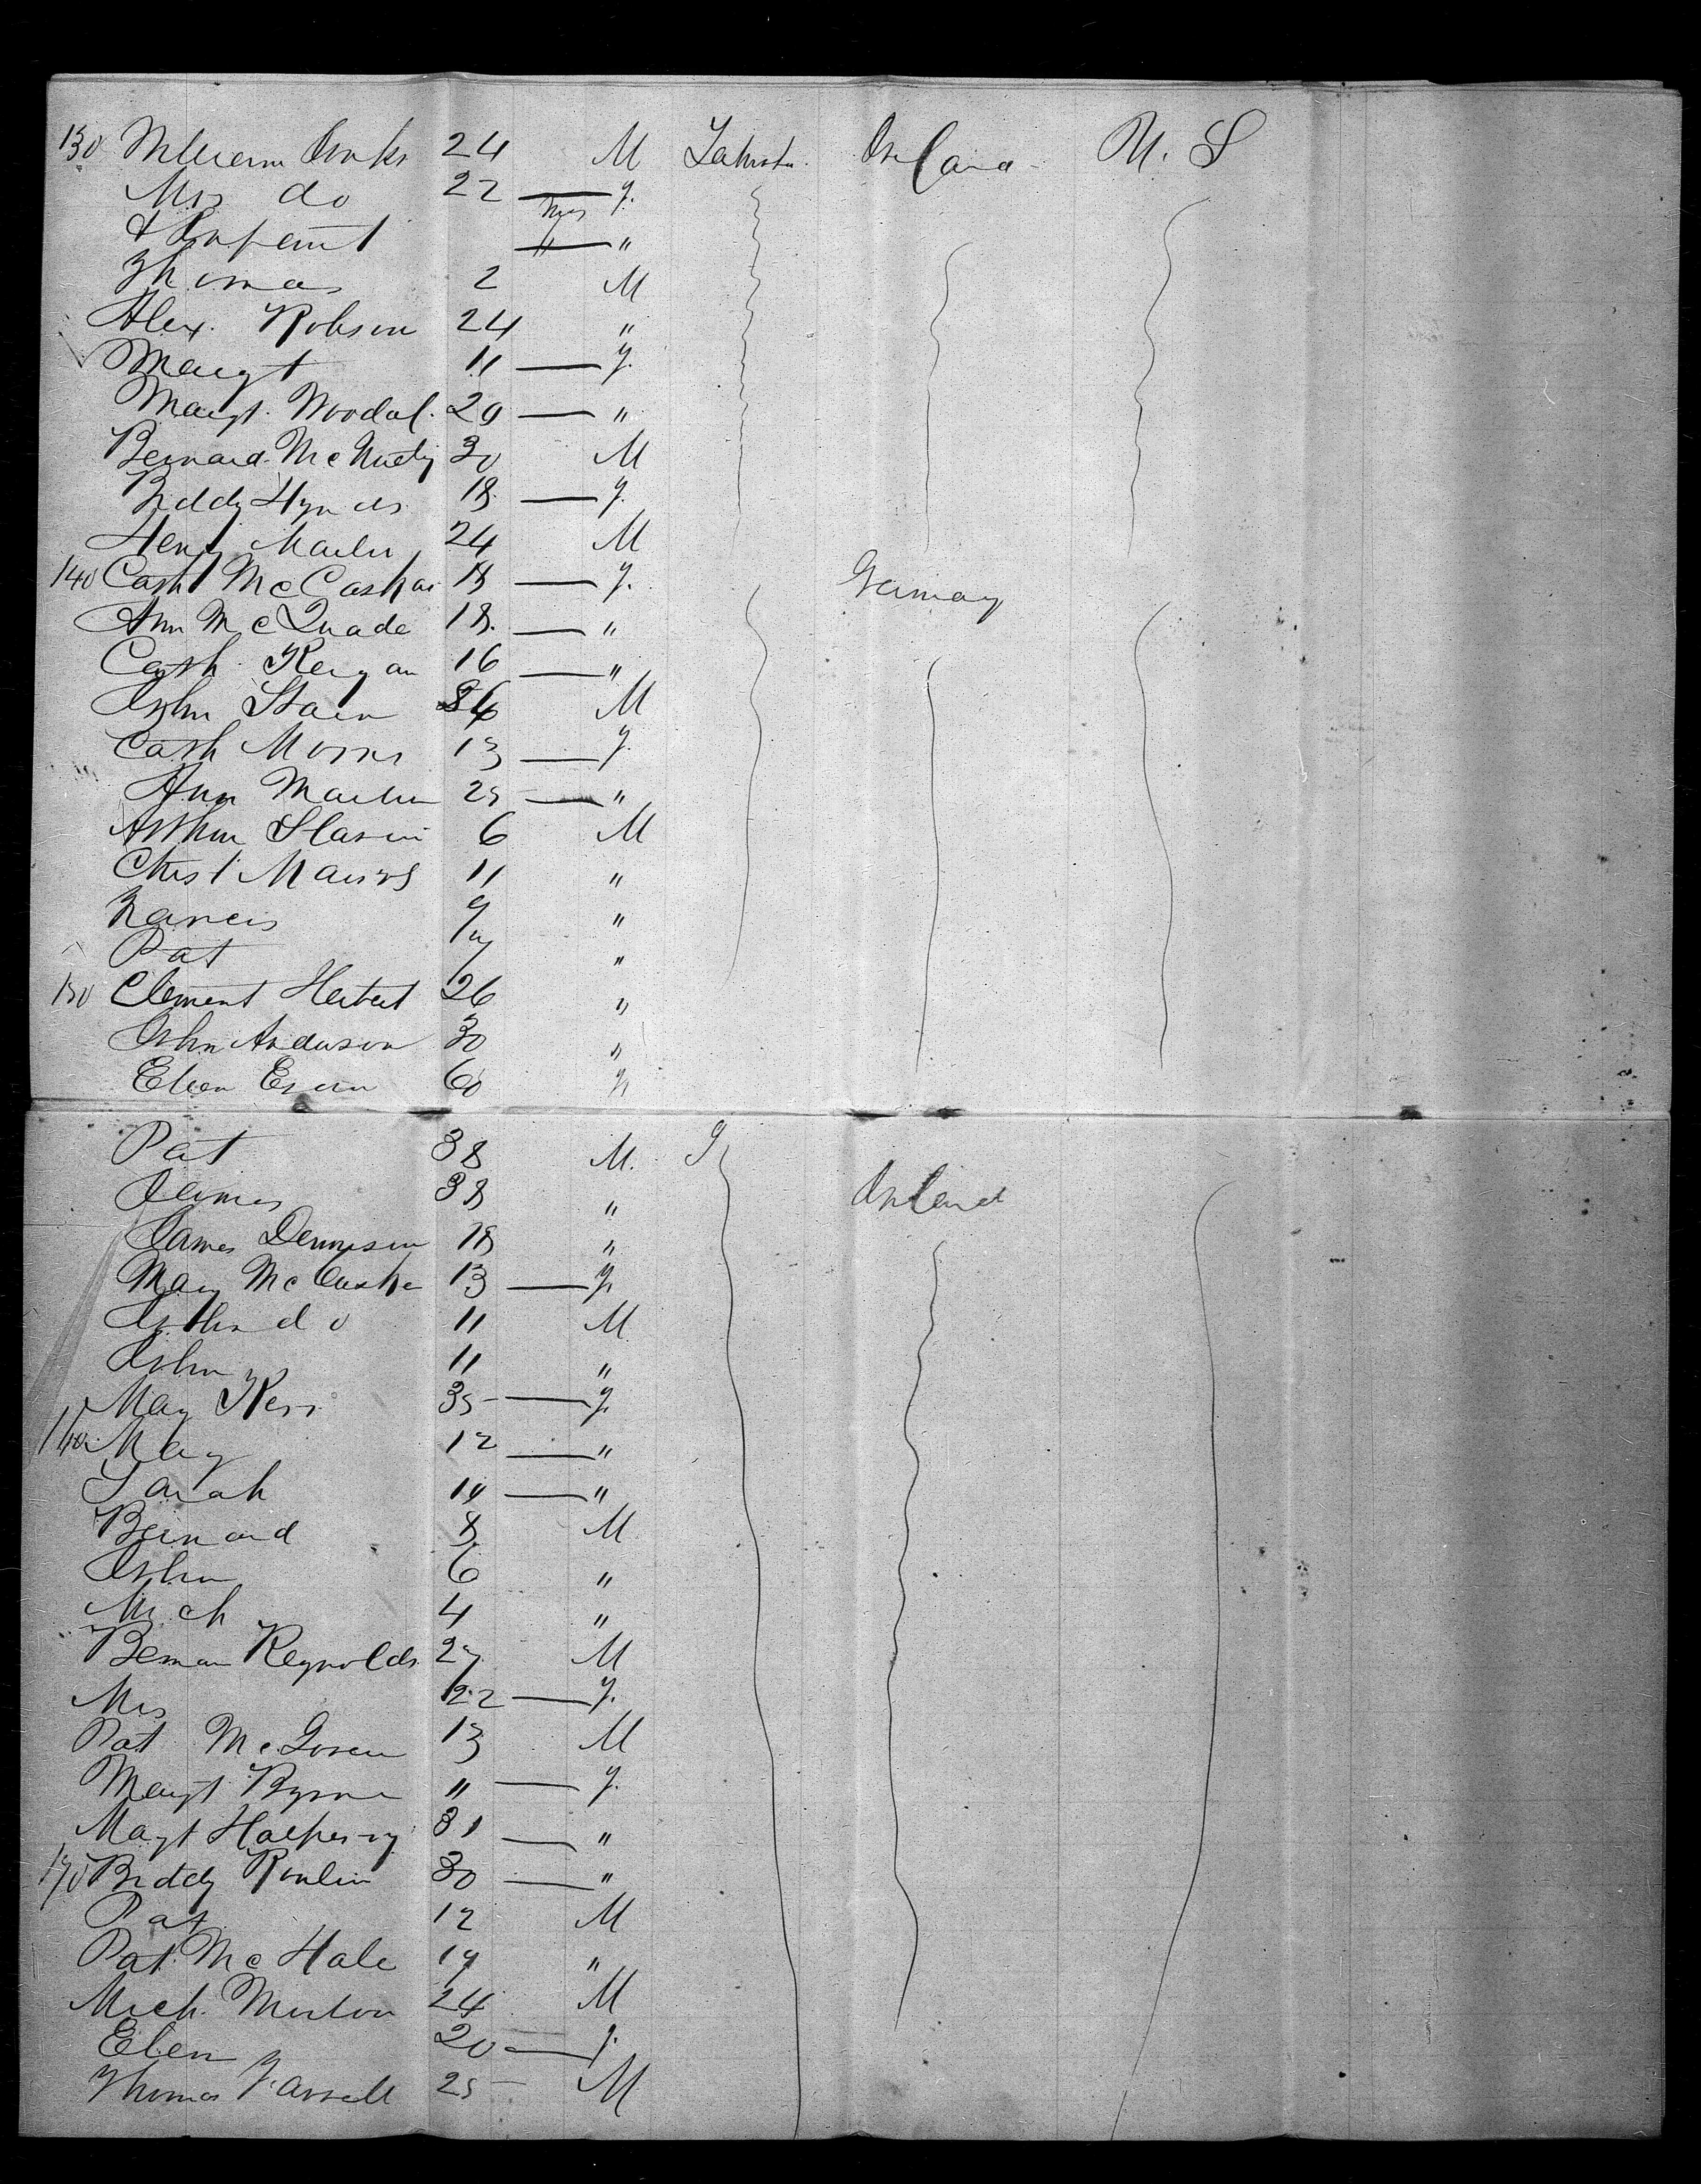 130 William 24 M Ireland U. S
Mrs do 22 — f.
& Infant — "
Thomas 2 M
Alex. Robson 24 "
Margt 11 — f.
Margt. Woodal. 20 — "
Bernard 30 M
Biddy Hynds 18 — f.
Henry Martin 24 M
140 Cath McCosker 18 — f. Germany
Ann McQuade 18. — "
Cath. Keegan 16 — "
John M
Cath Morris 13 — f.
Ann Martin 25 — "
Arthur Slavin 6 M
Christ 11 "
Francis 9 "
Pat 7 "
150 Clement Herbert 26 "
John Anderson 30 "
Ellen 60 "
Pat 38 M.
James 38 " Ireland
James Dennison 18 "
Mary McCusker 13 — f.
Arthur do 11 M
John 11 "
Mary Kerr 35 — f.
160 Mary 12 — "
Sarah 10 — "
Bernard 8 M
John 6 "
Mich 4 "
Bernard Reynolds 27 M
Mrs 22 — f.
Pat McGovern 13 M
Margt Byrne " — f.
Margt 31 — "
170 Biddy 30 — "
Pat 12 M
Pat McHale 19 "
Mich. 24 M
Ellen 20 — f.
Thomas Farrell 25 M